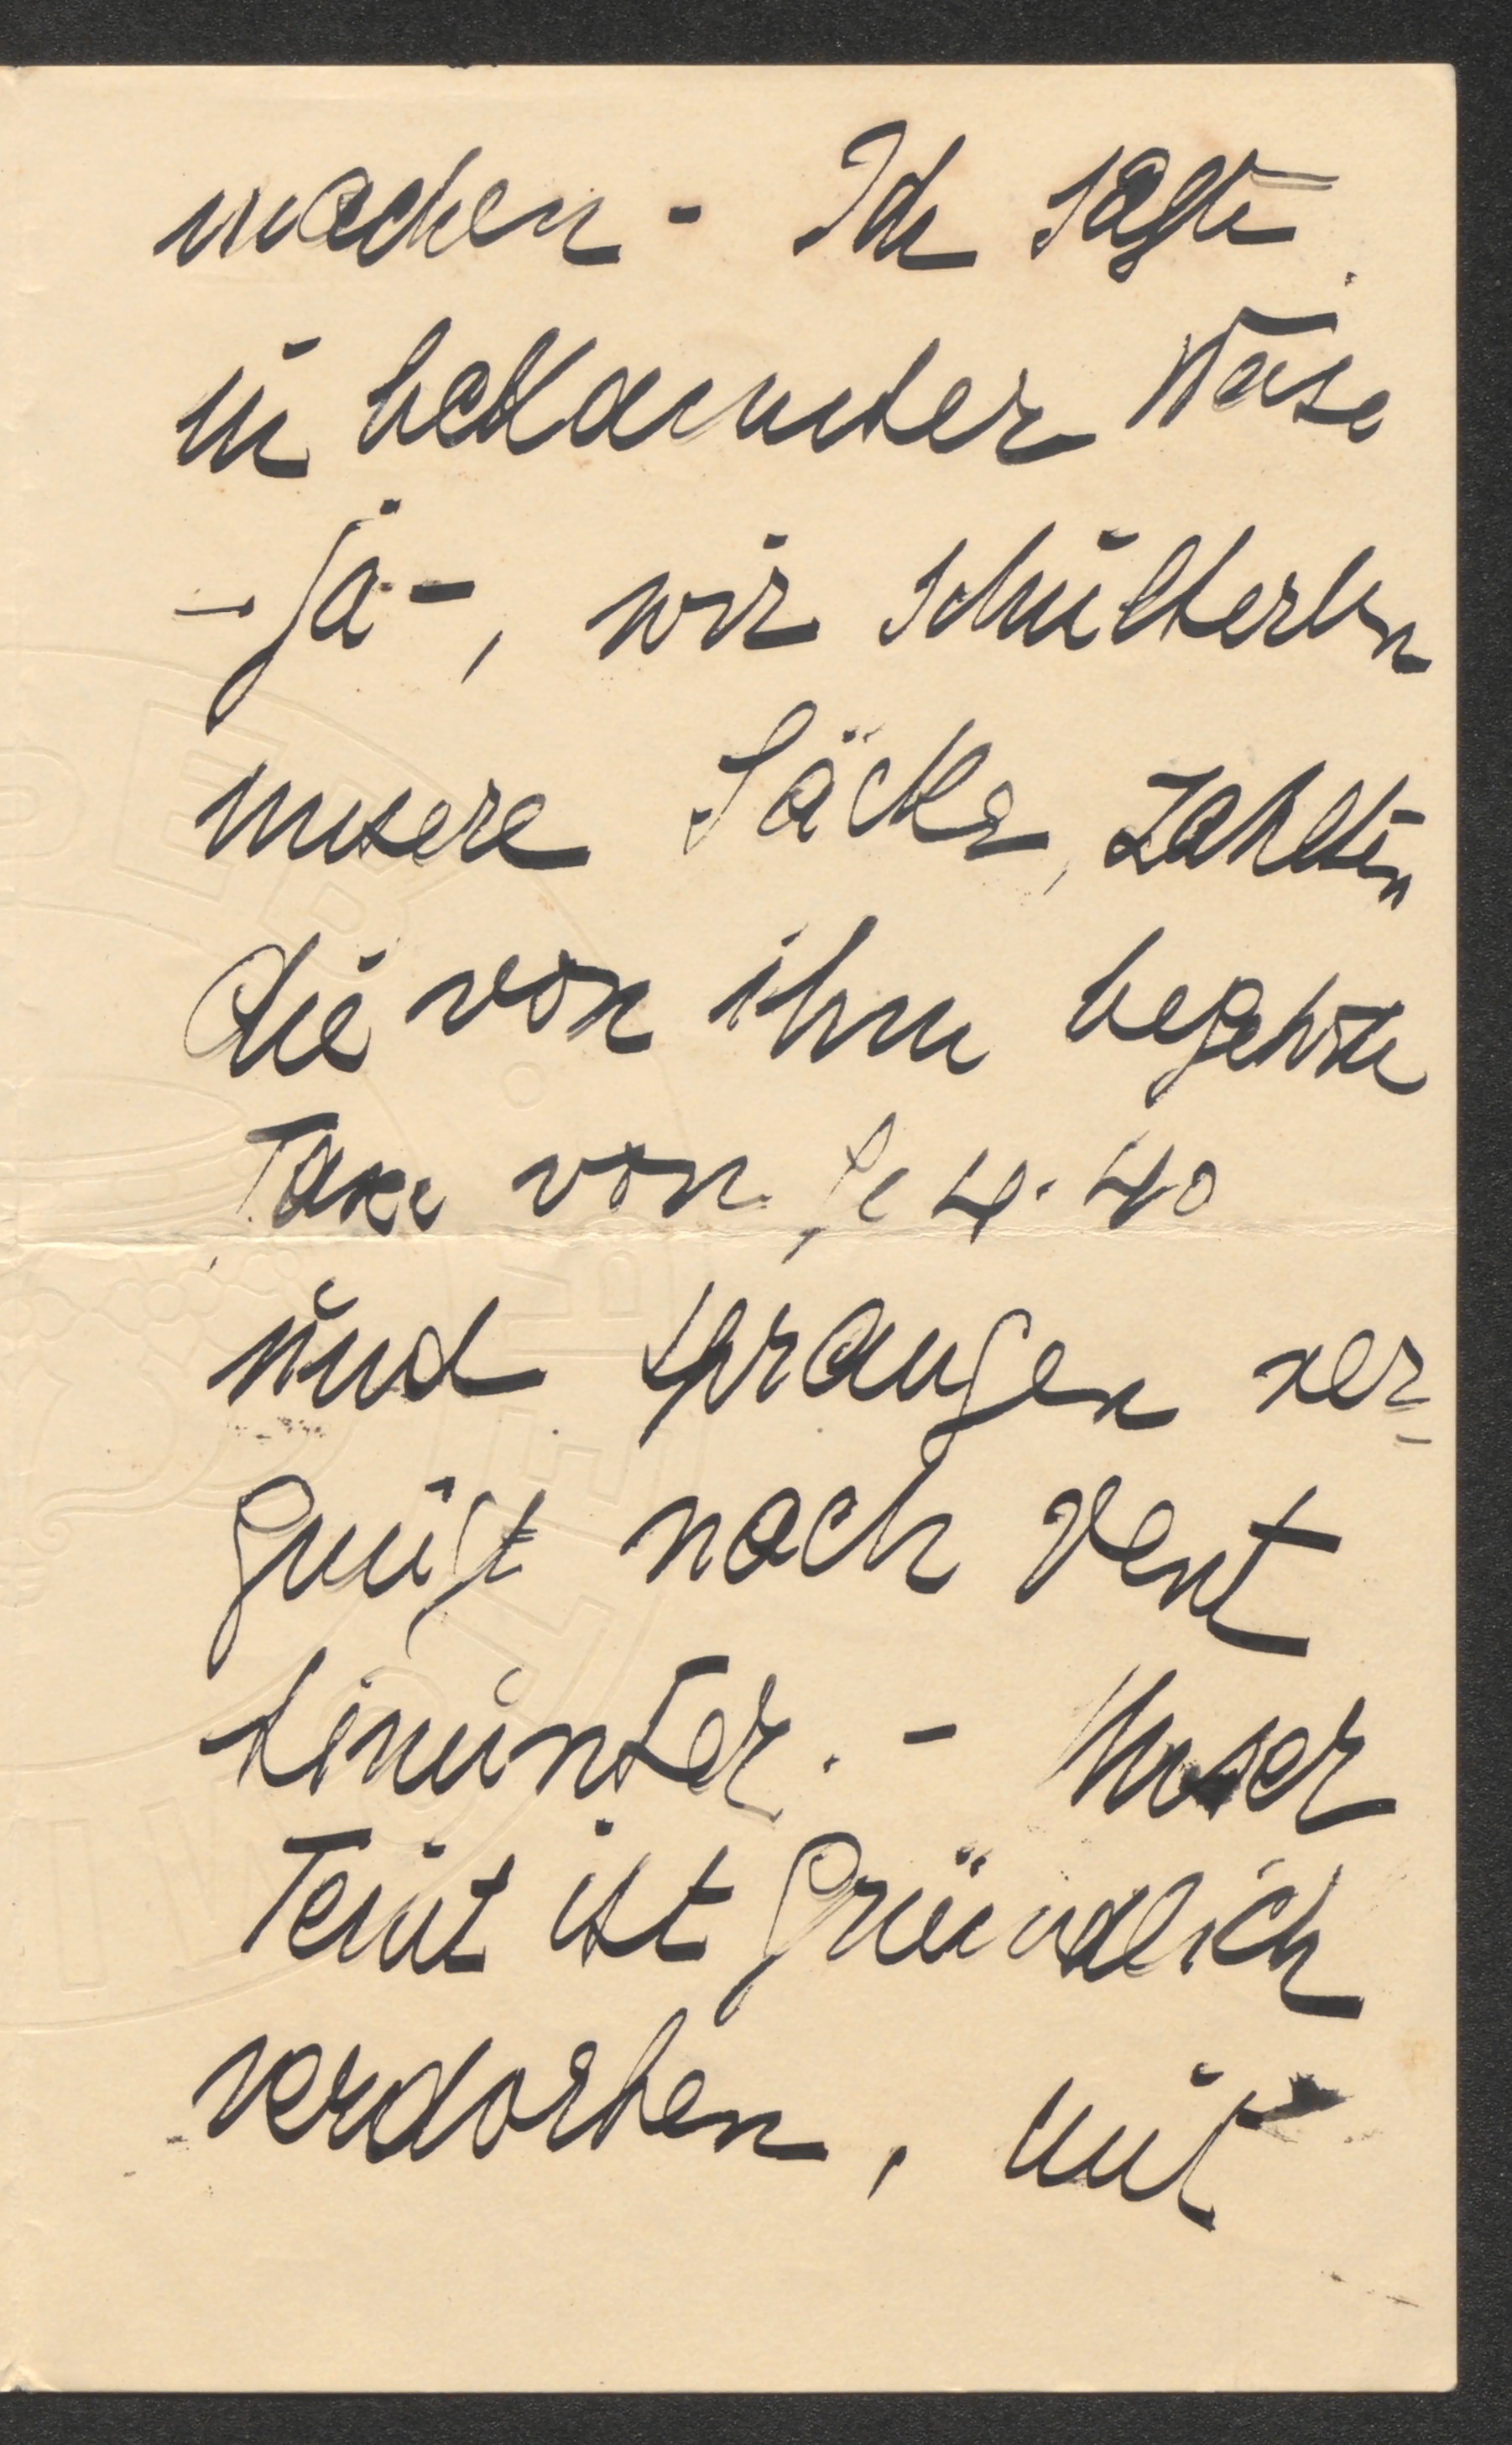 machen - Ich sagte
in bekannter Weise
- ja -, wir schulterten
unsere Säcke, zahlten
die von ihm begehrte
Taxe von fl 4.40
und sprangen ver=
gnügt nach Vent
hinunter. - Unser
Teint ist gründlich
verdorben, mit